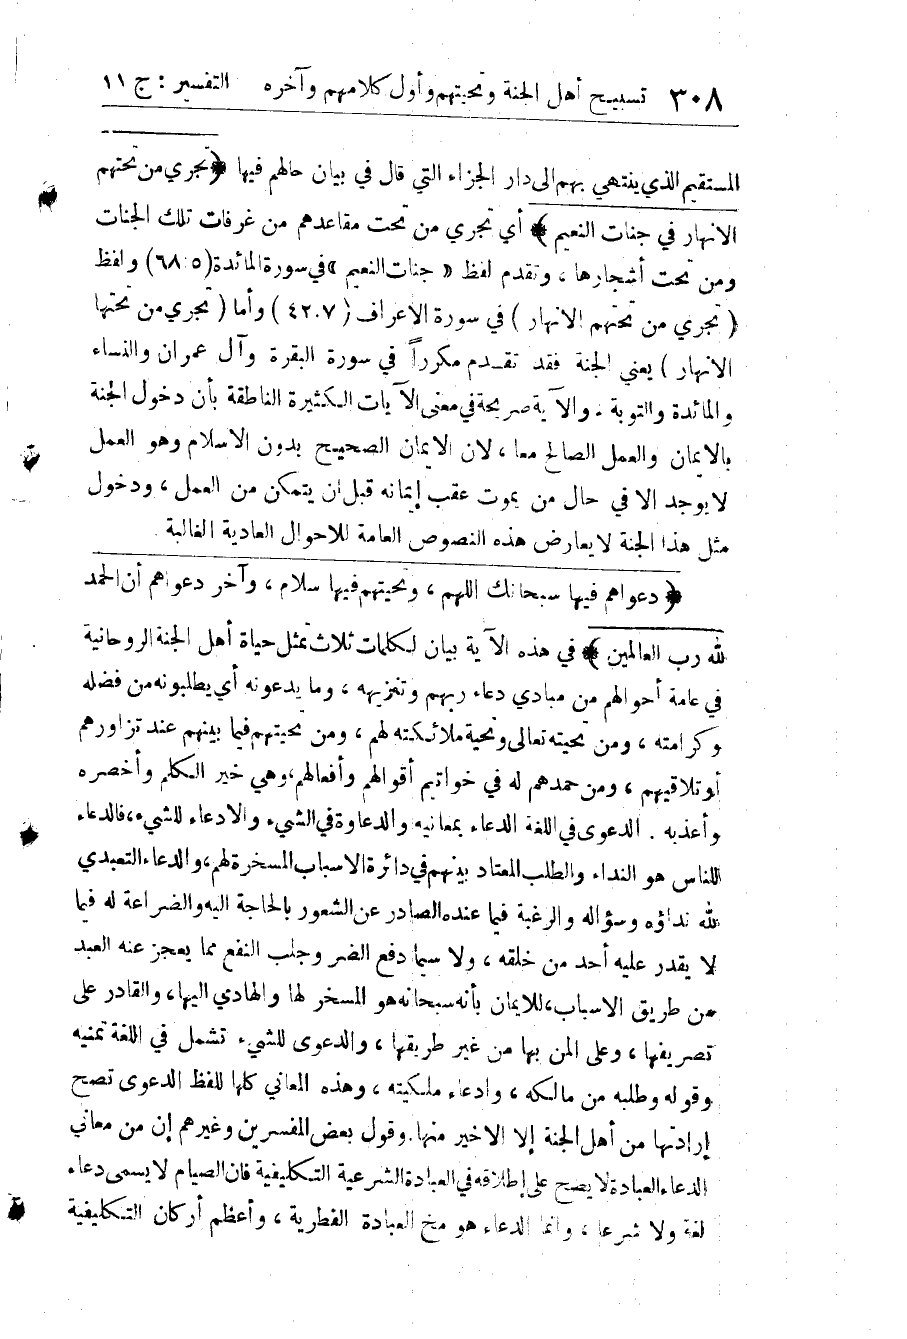 ٣٠٨ تسبيح أهل الجنة وتحيتهم وأول كلامهم وآخره التفسير : ج ١١
المستقيم الذي ينتهي بهم الى دار الجزاء التي قال في بيان حالهم فيها ﴿ تجري من تحتهم
الانهار في جنات النعيم ﴾ أي تجري من تحت مقاعدهم من غرفات تلك الجنات
ومن تحت أشجارها ، وتقدم لفظ « جنات النعيم » في سورة المائدة (٦٨:٥) ولفظ
( تجري من تحتهم الانهار ) في سورة الاعراف ( ٤٢.٧ ) وأما ( تجري من تحتها
الانهار ) يعني الجنة فقد تقدم مكرراً في سورة البقرة وآل عمران والنساء
والمائدة والتوبة . والآية صريحة في معنى الآيات الكثيرة الناطقة بأن دخول الجنة
بالايمان والعمل الصالح معا ، لان الايمان الصحيح بدون الاسلام وهو العمل
لا يوجد الا في حال من يموت عقب إيمانه قبل ان يتمكن من العمل ، ودخول
مثل هذا الجنة لا يعارض هذه النصوص العامة للاحوال العادية الغالبة .
﴿ دعواهم فيها سبحانك اللهم ، وتحيتهم فيها سلام ، وآخر دعواهم أن الحمد
لله رب العالمين ﴾ في هذه الآية بيان لكلمات ثلاث تمثل حياة أهل الجنة الروحانية
في عامة أحوالهم من مبادي دعاء ربهم وتنزيهه ، وما يدعونه أي يطلبونه من فضله
وكرامته ، ومن تحيته تعالى وتحية ملائكته لهم ، ومن تحيتهم فيما بينهم عند تزاورهم
أو تلاقيهم ، ومن حمدهم له في خواتيم أقوالهم وأفعالهم، وهي خير الكلم وأخصره
وأعذبه . الدعوى في اللغة الدعاء بمعانيه والدعاوة في الشيء والادعاء للشيء، فالدعاء
للناس هو النداء والطلب المعتاد بينهم في دائرة الاسباب المسخرة لهم، والدعاء التعبدي
لله نداؤه وسؤاله والرغبة فيما عنده الصادر عن الشعور بالحاجة اليه والضراعة له فيما
لا يقدر عليه أحد من خلقه ، ولا سيما دفع الضر وجلب النفع مما يعجز عنه العبد
من طريق الاسباب، للايمان بأنه سبحانه هو المسخر لها والهادي اليها، والقادر على
تصريفها ، وعلى المن بها من غير طريقها ، والدعوى للشيء تشمل في اللغة تمنيه
وقوله وطلبه من مالكه ، وادعاء ملكيته ، وهذه المعاني كلها للفظ الدعوى تصح
إرادتها من أهل الجنة إلا الاخير منها. وقول بعض المفسرين وغيرهم إن من معاني
الدعاء العبادة لا يصح على إطلاقه في العبادة الشرعية التكليفية فان الصيام لا يسمى دعاء
لغة ولا شرعا ، وانما الدعاء هو مخ العبادة الفطرية ، وأعظم أركان التكليفية